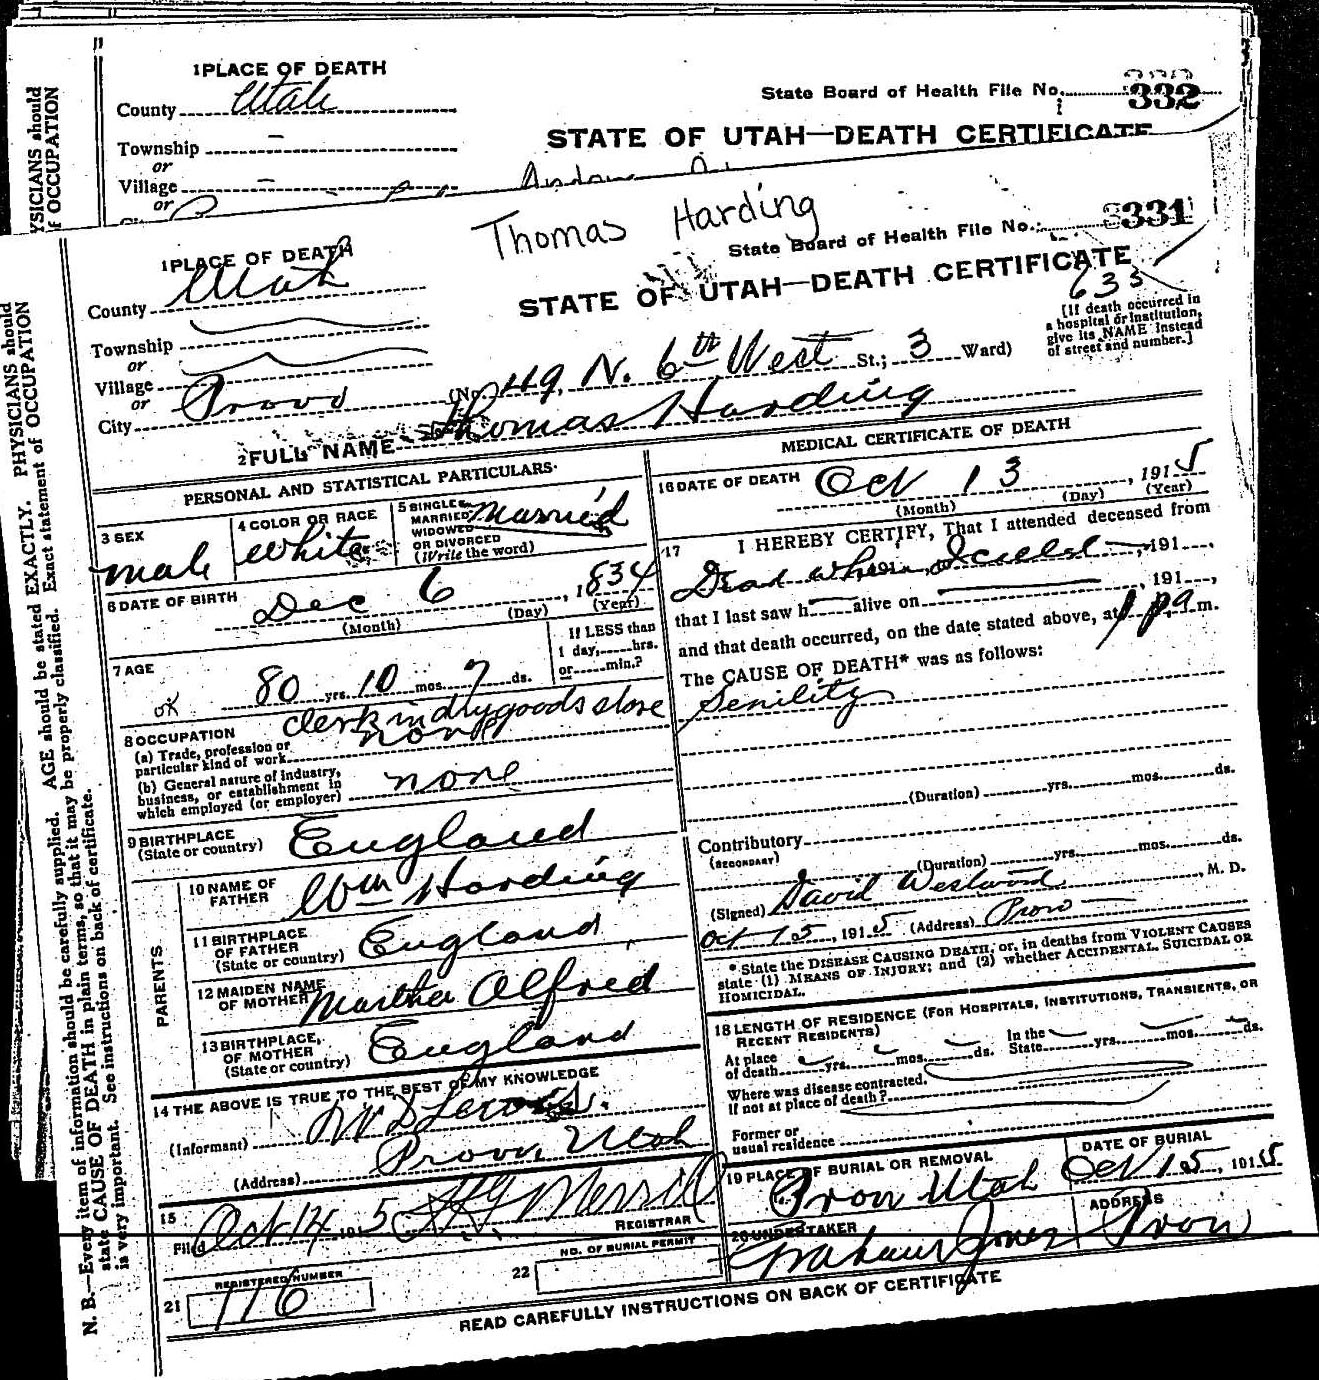 1 PLACE OF DEATH
County Utah
State Board of Health File No. 332
Township
or
STATE OF UTAH—DEATH CERTIFICATE
Village
or
Thomas Harding
State Board of Health File No. 331
1 PLACE OF DEATH
STATE OF UTAH—DEATH CERTIFICATE
County Utah
633
[If death occurred in
a hospital or institution,
give its NAME instead
of street and number.]
Township
or
Village
or
City Provo (No. 119, N. 6th West St.; 3 Ward)
2 FULL NAME Thomas Harding
PERSONAL AND STATISTICAL PARTICULARS
3 SEX
male
4 COLOR OR RACE
White
5 SINGLE
MARRIED
WIDOWED
OR DIVORCED
(Write the word)
Married
6 DATE OF BIRTH
Dec 6, 1834
(Month) (Day) (Year)
7 AGE
80 yrs. 10 mos. 7 ds.
If LESS than
1 day,.....hrs.
or.....min.?
OK
8 OCCUPATION
clerk in dry goods store
(a) Trade, profession or
particular kind of work none
(b) General nature of industry,
business, or establishment in
which employed (or employer) none
9 BIRTHPLACE
(State or country) England
PARENTS
10 NAME OF
FATHER Wm Harding
11 BIRTHPLACE
OF FATHER
(State or country) England
12 MAIDEN NAME
OF MOTHER Martha Alfred
13 BIRTHPLACE,
OF MOTHER
(State or country) England
14 THE ABOVE IS TRUE TO THE BEST OF MY KNOWLEDGE
(Informant) W D Lewis
(Address) Provo, Utah
15
Filed Oct 14 1915 Merrill
REGISTRAR
REGISTERED NUMBER
21 116
NO. OF BURIAL PERMIT
22
MEDICAL CERTIFICATE OF DEATH
16 DATE OF DEATH Oct 13, 1915
(Month) (Day) (Year)
17 I HEREBY CERTIFY, That I attended deceased from
Dead when I called, 191
that I last saw h alive on , 191 ,
and that death occurred, on the date stated above, at 1 p m.
The CAUSE OF DEATH* was as follows:
Senility
(Duration) yrs. mos. ds.
Contributory
(SECONDARY)
(Duration) yrs. mos. ds.
(Signed) David Westwood, M. D.
Oct 15, 1915 (Address) Provo
* State the DISEASE CAUSING DEATH, or, in deaths from VIOLENT CAUSES
state (1) MEANS OF INJURY; and (2) whether ACCIDENTAL, SUICIDAL OR
HOMICIDAL.
18 LENGTH OF RESIDENCE (FOR HOSPITALS, INSTITUTIONS, TRANSIENTS, OR
RECENT RESIDENTS)
At place
of death yrs. mos. ds.
In the
State yrs. mos. ds.
Where was disease contracted.
If not at place of death?
Former or
usual residence
19 PLACE OF BURIAL OR REMOVAL
Provo Utah
DATE OF BURIAL
Oct 15, 1915
20 UNDERTAKER
Jones
ADDRESS
Provo
READ CAREFULLY INSTRUCTIONS ON BACK OF CERTIFICATE
N. B.—Every item of information should be carefully supplied. AGE should be stated EXACTLY. PHYSICIANS should
state CAUSE OF DEATH in plain terms, so that it may be properly classified. Exact statement of OCCUPATION
is very important. See instructions on back of certificate.
YSICIANS should
f OCCUPATION